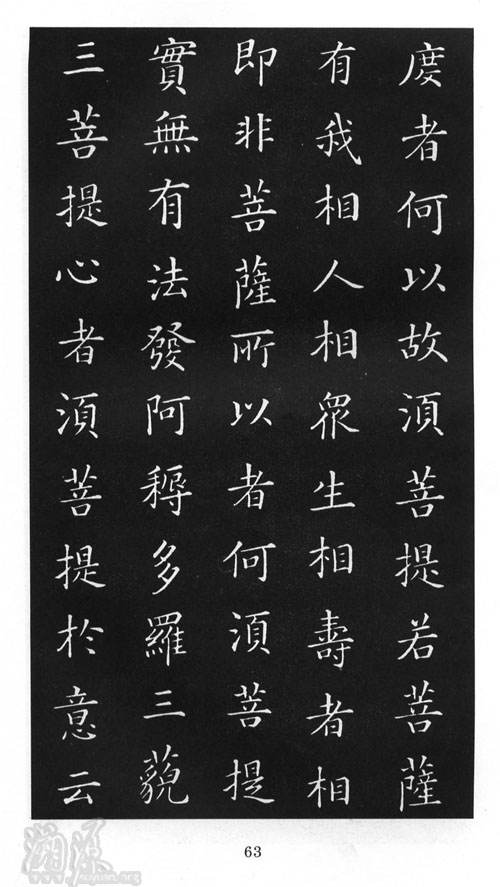 度者何以故須菩提若菩薩
有我相人相衆生相壽者相
即非菩薩所以者何須菩提
實無有法發阿耨多羅三藐
三菩提心者須菩提於意云
63
溯源
suyuan.org